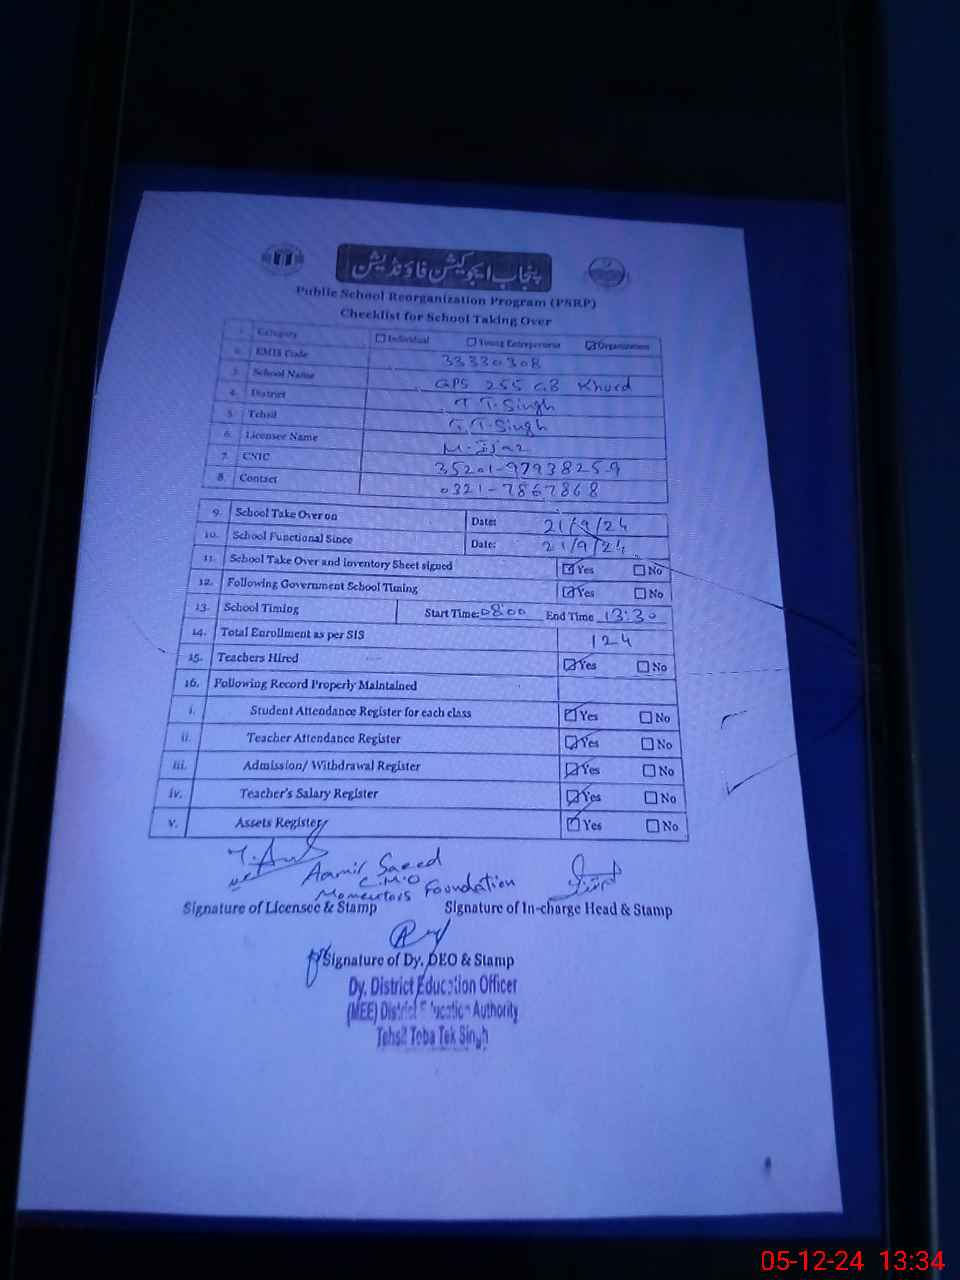 پنجاب ایجوکیشن فاؤنڈیشن
Public School Reorganization Program (PSRP)
Checklist for School Taking Over
1. Category Individual Young Entrepreneur Organization
2. EMIS Code 33330308
3. School Name GPS 255 GB Khurd
4. District T.T.Singh
5. Tehsil T.T.Singh
6. Licensee Name M.
7. CNIC 35201-9793825-9
8. Contact 0321-7867868
9. School Take Over on Date: 21/9/24
10. School Functional Since Date: 21/9/24
11. School Take Over and Inventory Sheet signed Yes No
12. Following Government School Timing Yes No
13. School Timing Start Time: 08:00 End Time 13:30
14. Total Enrollment as per SIS 124
15. Teachers Hired Yes No
16. Following Record Properly Maintained
i. Student Attendance Register for each class Yes No
ii. Teacher Attendance Register Yes No
iii. Admission/ Withdrawal Register Yes No
iv. Teacher's Salary Register Yes No
v. Assets Register Yes No
Aamir Saeed
C.M.O
Momentors Foundation
Signature of Licensee & Stamp Signature of In-charge Head & Stamp
Signature of Dy. DEO & Stamp
Dy. District Education Officer
(MEE) District Education Authority
Tehsil Toba Tek Singh
05-12-24 13:34